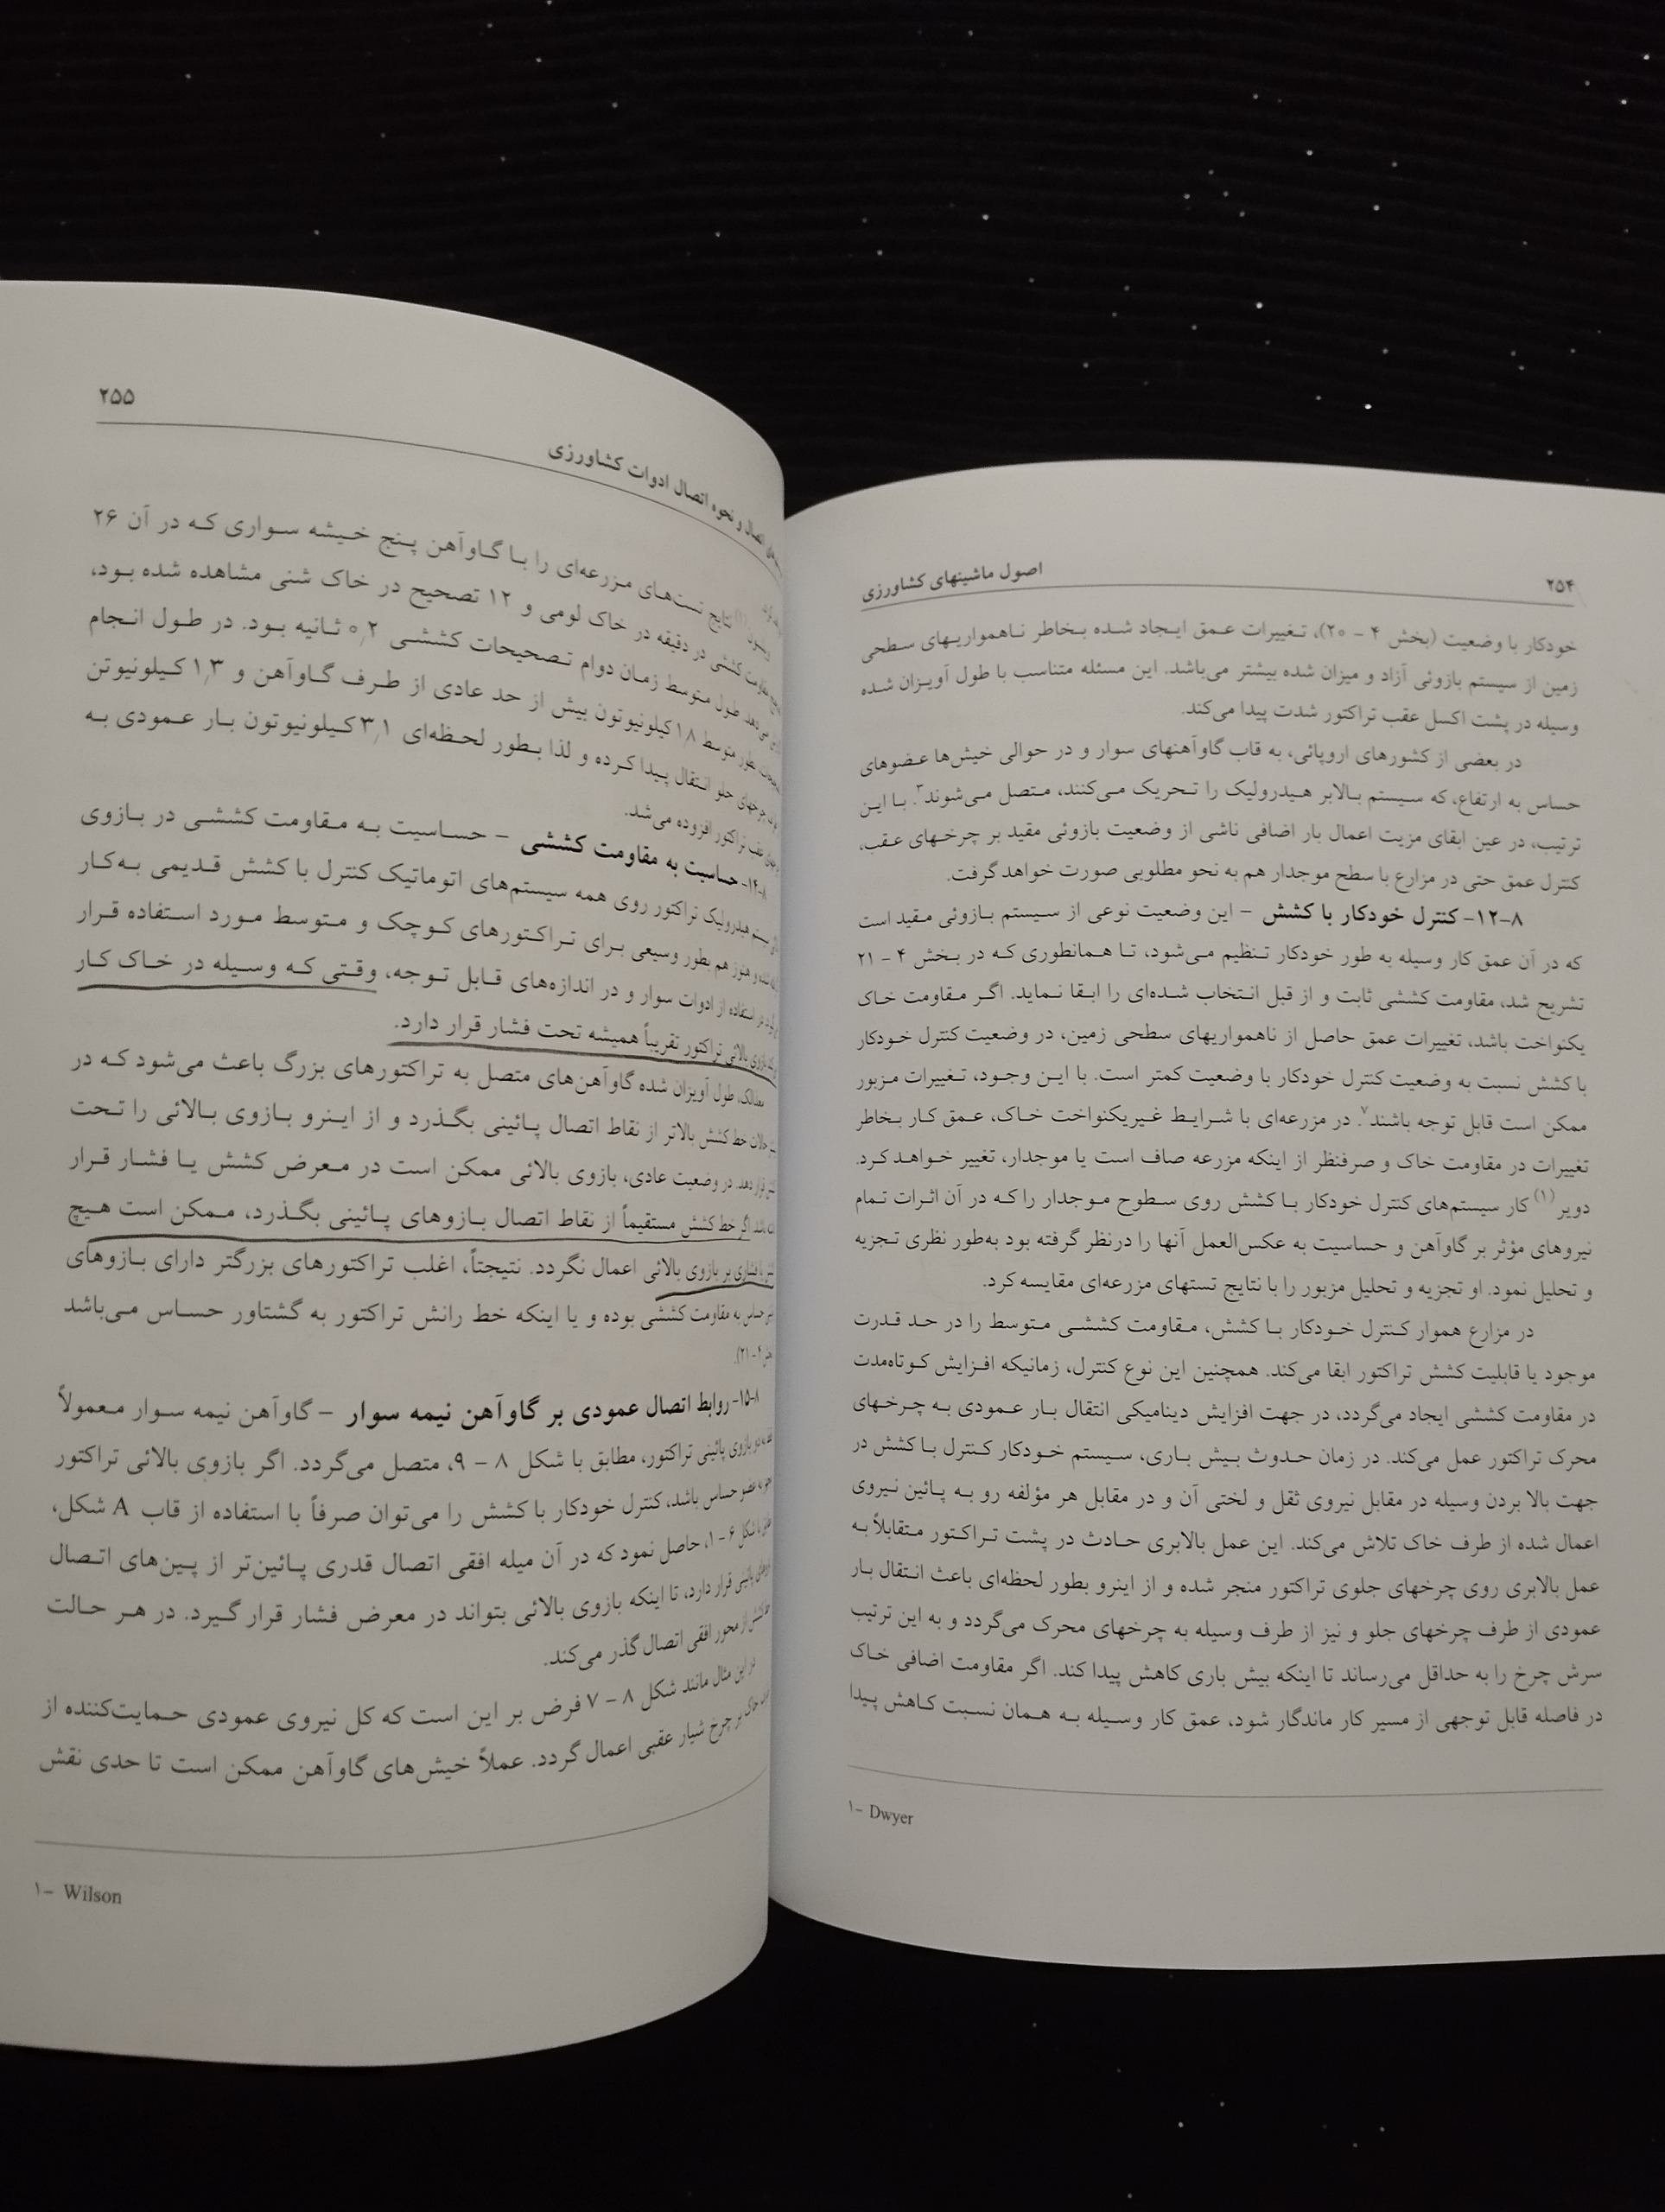 ۲۵۴
اصول ماشینهای کشاورزی
خودکار با وضعیت (بخش ۴ – ۲۰)، تغییرات عمق ایجاد شده بخاطر ناهمواریهای سطحی
زمین از سیستم بازوئی آزاد و میزان شده بیشتر می‌باشد. این مسئله متناسب با طول آویزان شده
وسیله در پشت اکسل عقب تراکتور شدت پیدا می‌کند.
در بعضی از کشورهای اروپائی، به قاب گاوآهنهای سوار و در حوالی خیش‌ها عضوهای
حساس به ارتفاع، که سیستم بالابر هیدرولیک را تحریک می‌کنند، متصل می‌شوند۳. با این
ترتیب، در عین ابقای مزیت اعمال بار اضافی ناشی از وضعیت بازوئی مقید بر چرخهای عقب،
کنترل عمق حتی در مزارع با سطح موجدار هم به نحو مطلوبی صورت خواهد گرفت.
۸–۱۲– کنترل خودکار با کشش – این وضعیت نوعی از سیستم بازوئی مقید است
که در آن عمق کار وسیله به طور خودکار تنظیم می‌شود، تا همانطوری که در بخش ۴ – ۲۱
تشریح شد، مقاومت کششی ثابت و از قبل انتخاب شده‌ای را ابقا نماید. اگر مقاومت خاک
یکنواخت باشد، تغییرات عمق حاصل از ناهمواریهای سطحی زمین، در وضعیت کنترل خودکار
با کشش نسبت به وضعیت کنترل خودکار با وضعیت کمتر است. با این وجود، تغییرات مزبور
ممکن است قابل توجه باشند۷. در مزرعه‌ای با شرایط غیریکنواخت خاک، عمق کار بخاطر
تغییرات در مقاومت خاک و صرفنظر از اینکه مزرعه صاف است یا موجدار، تغییر خواهد کرد.
دویر(۱) کار سیستم‌های کنترل خودکار با کشش روی سطوح موجدار را که در آن اثرات تمام
نیروهای مؤثر بر گاوآهن و حساسیت به عکس‌العمل آنها را درنظر گرفته بود به‌طور نظری تجزیه
و تحلیل نمود. او تجزیه و تحلیل مزبور را با نتایج تستهای مزرعه‌ای مقایسه کرد.
در مزارع هموار کنترل خودکار با کشش، مقاومت کششی متوسط را در حد قدرت
موجود یا قابلیت کشش تراکتور ابقا می‌کند. همچنین این نوع کنترل، زمانیکه افزایش کوتاه‌مدت
در مقاومت کششی ایجاد می‌گردد، در جهت افزایش دینامیکی انتقال بار عمودی به چرخهای
محرک تراکتور عمل می‌کند. در زمان حدوث بیش باری، سیستم خودکار کنترل با کشش در
جهت بالا بردن وسیله در مقابل نیروی ثقل و لختی آن و در مقابل هر مؤلفه رو به پائین نیروی
اعمال شده از طرف خاک تلاش می‌کند. این عمل بالابری حادث در پشت تراکتور متقابلاً به
عمل بالابری روی چرخهای جلوی تراکتور منجر شده و از اینرو بطور لحظه‌ای باعث انتقال بار
عمودی از طرف چرخهای جلو و نیز از طرف وسیله به چرخهای محرک می‌گردد و به این ترتیب
سرش چرخ را به حداقل می‌رساند تا اینکه بیش باری کاهش پیدا کند. اگر مقاومت اضافی خاک
در فاصله قابل توجهی از مسیر کار ماندگار شود، عمق کار وسیله به همان نسبت کاهش پیدا
۱– Dwyer
اتصال و نحوه اتصال ادوات کشاورزی
۲۵۵
نتایج تست‌های مزرعه‌ای را با گاوآهن پنج خیشه سواری که در آن ۲۶
مقاومت کششی در دقیقه در خاک لومی و ۱۲ تصحیح در خاک شنی مشاهده شده بود،
می‌دهد. طول متوسط زمان دوام تصحیحات کششی ۰٫۲ ثانیه بود. در طول انجام
بطور متوسط ۱٫۸ کیلونیوتون بیش از حد عادی از طرف گاوآهن و ۱٫۳ کیلونیوتن
چرخهای جلو انتقال پیدا کرده و لذا بطور لحظه‌ای ۳٫۱ کیلونیوتون بار عمودی به
عقب تراکتور افزوده می‌شد.
۸–۱۴– حساسیت به مقاومت کششی – حساسیت به مقاومت کششی در بازوی
هیدرولیک تراکتور روی همه سیستم‌های اتوماتیک کنترل با کشش قدیمی به‌کار
شده و هنوز هم بطور وسیعی برای تراکتورهای کوچک و متوسط مورد استفاده قرار
استفاده از ادوات سوار و در اندازه‌های قابل توجه، وقتی که وسیله در خاک کار
بازوی بالائی تراکتور تقریباً همیشه تحت فشار قرار دارد.
طول آویزان شده گاوآهن‌های متصل به تراکتورهای بزرگ باعث می‌شود که در
خط کشش بالاتر از نقاط اتصال پائینی بگذرد و از اینرو بازوی بالائی را تحت
قرار دهد. در وضعیت عادی، بازوی بالائی ممکن است در معرض کشش یا فشار قرار
اگر خط کشش مستقیماً از نقاط اتصال بازوهای پائینی بگذرد، ممکن است هیچ
فشاری بر بازوی بالائی اعمال نگردد. نتیجتاً، اغلب تراکتورهای بزرگتر دارای بازوهای
حساس به مقاومت کششی بوده و یا اینکه خط رانش تراکتور به گشتاور حساس می‌باشد
۴ – ۲۱).
۸–۱۵– روابط اتصال عمودی بر گاوآهن نیمه سوار – گاوآهن نیمه سوار معمولاً
بازوی پائینی تراکتور، مطابق با شکل ۸ – ۹، متصل می‌گردد. اگر بازوی بالائی تراکتور
عضو حساس باشد، کنترل خودکار با کشش را می‌توان صرفاً با استفاده از قاب A شکل،
شکل ۶ – ۱، حاصل نمود که در آن میله افقی اتصال قدری پائین‌تر از پین‌های اتصال
پائینی قرار دارد، تا اینکه بازوی بالائی بتواند در معرض فشار قرار گیرد. در هر حالت
از محور افقی اتصال گذر می‌کند.
در این مثال مانند شکل ۸ – ۷ فرض بر این است که کل نیروی عمودی حمایت‌کننده از
خاک بر چرخ شیار عقبی اعمال گردد. عملاً خیش‌های گاوآهن ممکن است تا حدی نقش
۱– Wilson